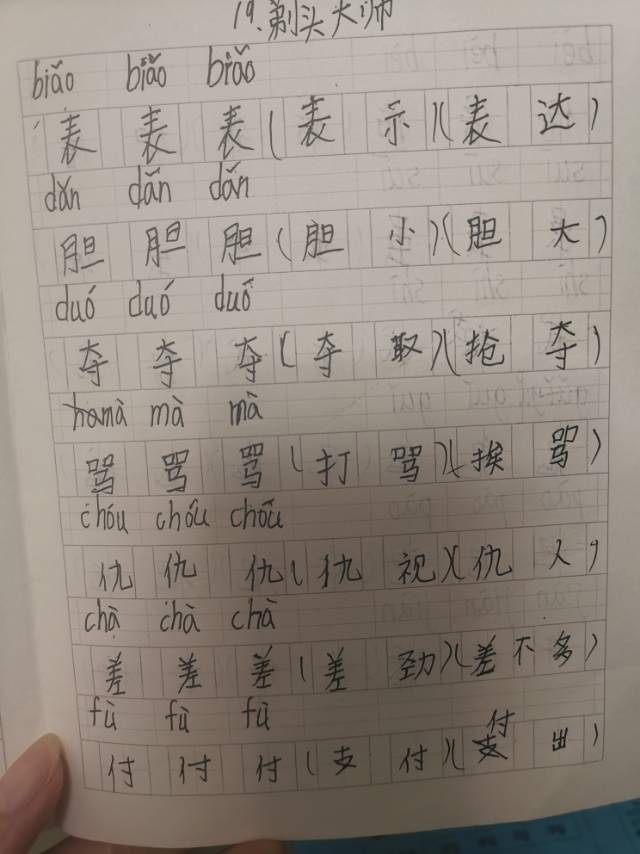 19.剃头大师
biǎo biǎo biǎo
表 表 表(表 示)(表 达)
dǎn dǎn dǎn
胆 胆 胆(胆 小)(胆 大)
duó duó duó
夺 夺 夺(夺 取)(抢 夺)
mà mà mà
骂 骂 骂(打 骂)(挨 骂)
chóu chóu chóu
仇 仇 仇(仇 视)(仇 人)
chà chà chà
差 差 差(差 劲)(差 不 多)
fù fù fù
付 付 付(支 付)(付 出)